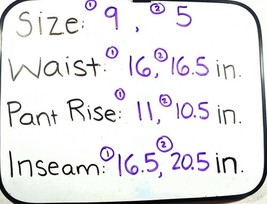 Size: ① 9 , ② 5
Waist: ① 16, ② 16.5 in.
Pant Rise: ① 11, ② 10.5 in.
Inseam: ① 16.5, ② 20.5 in.